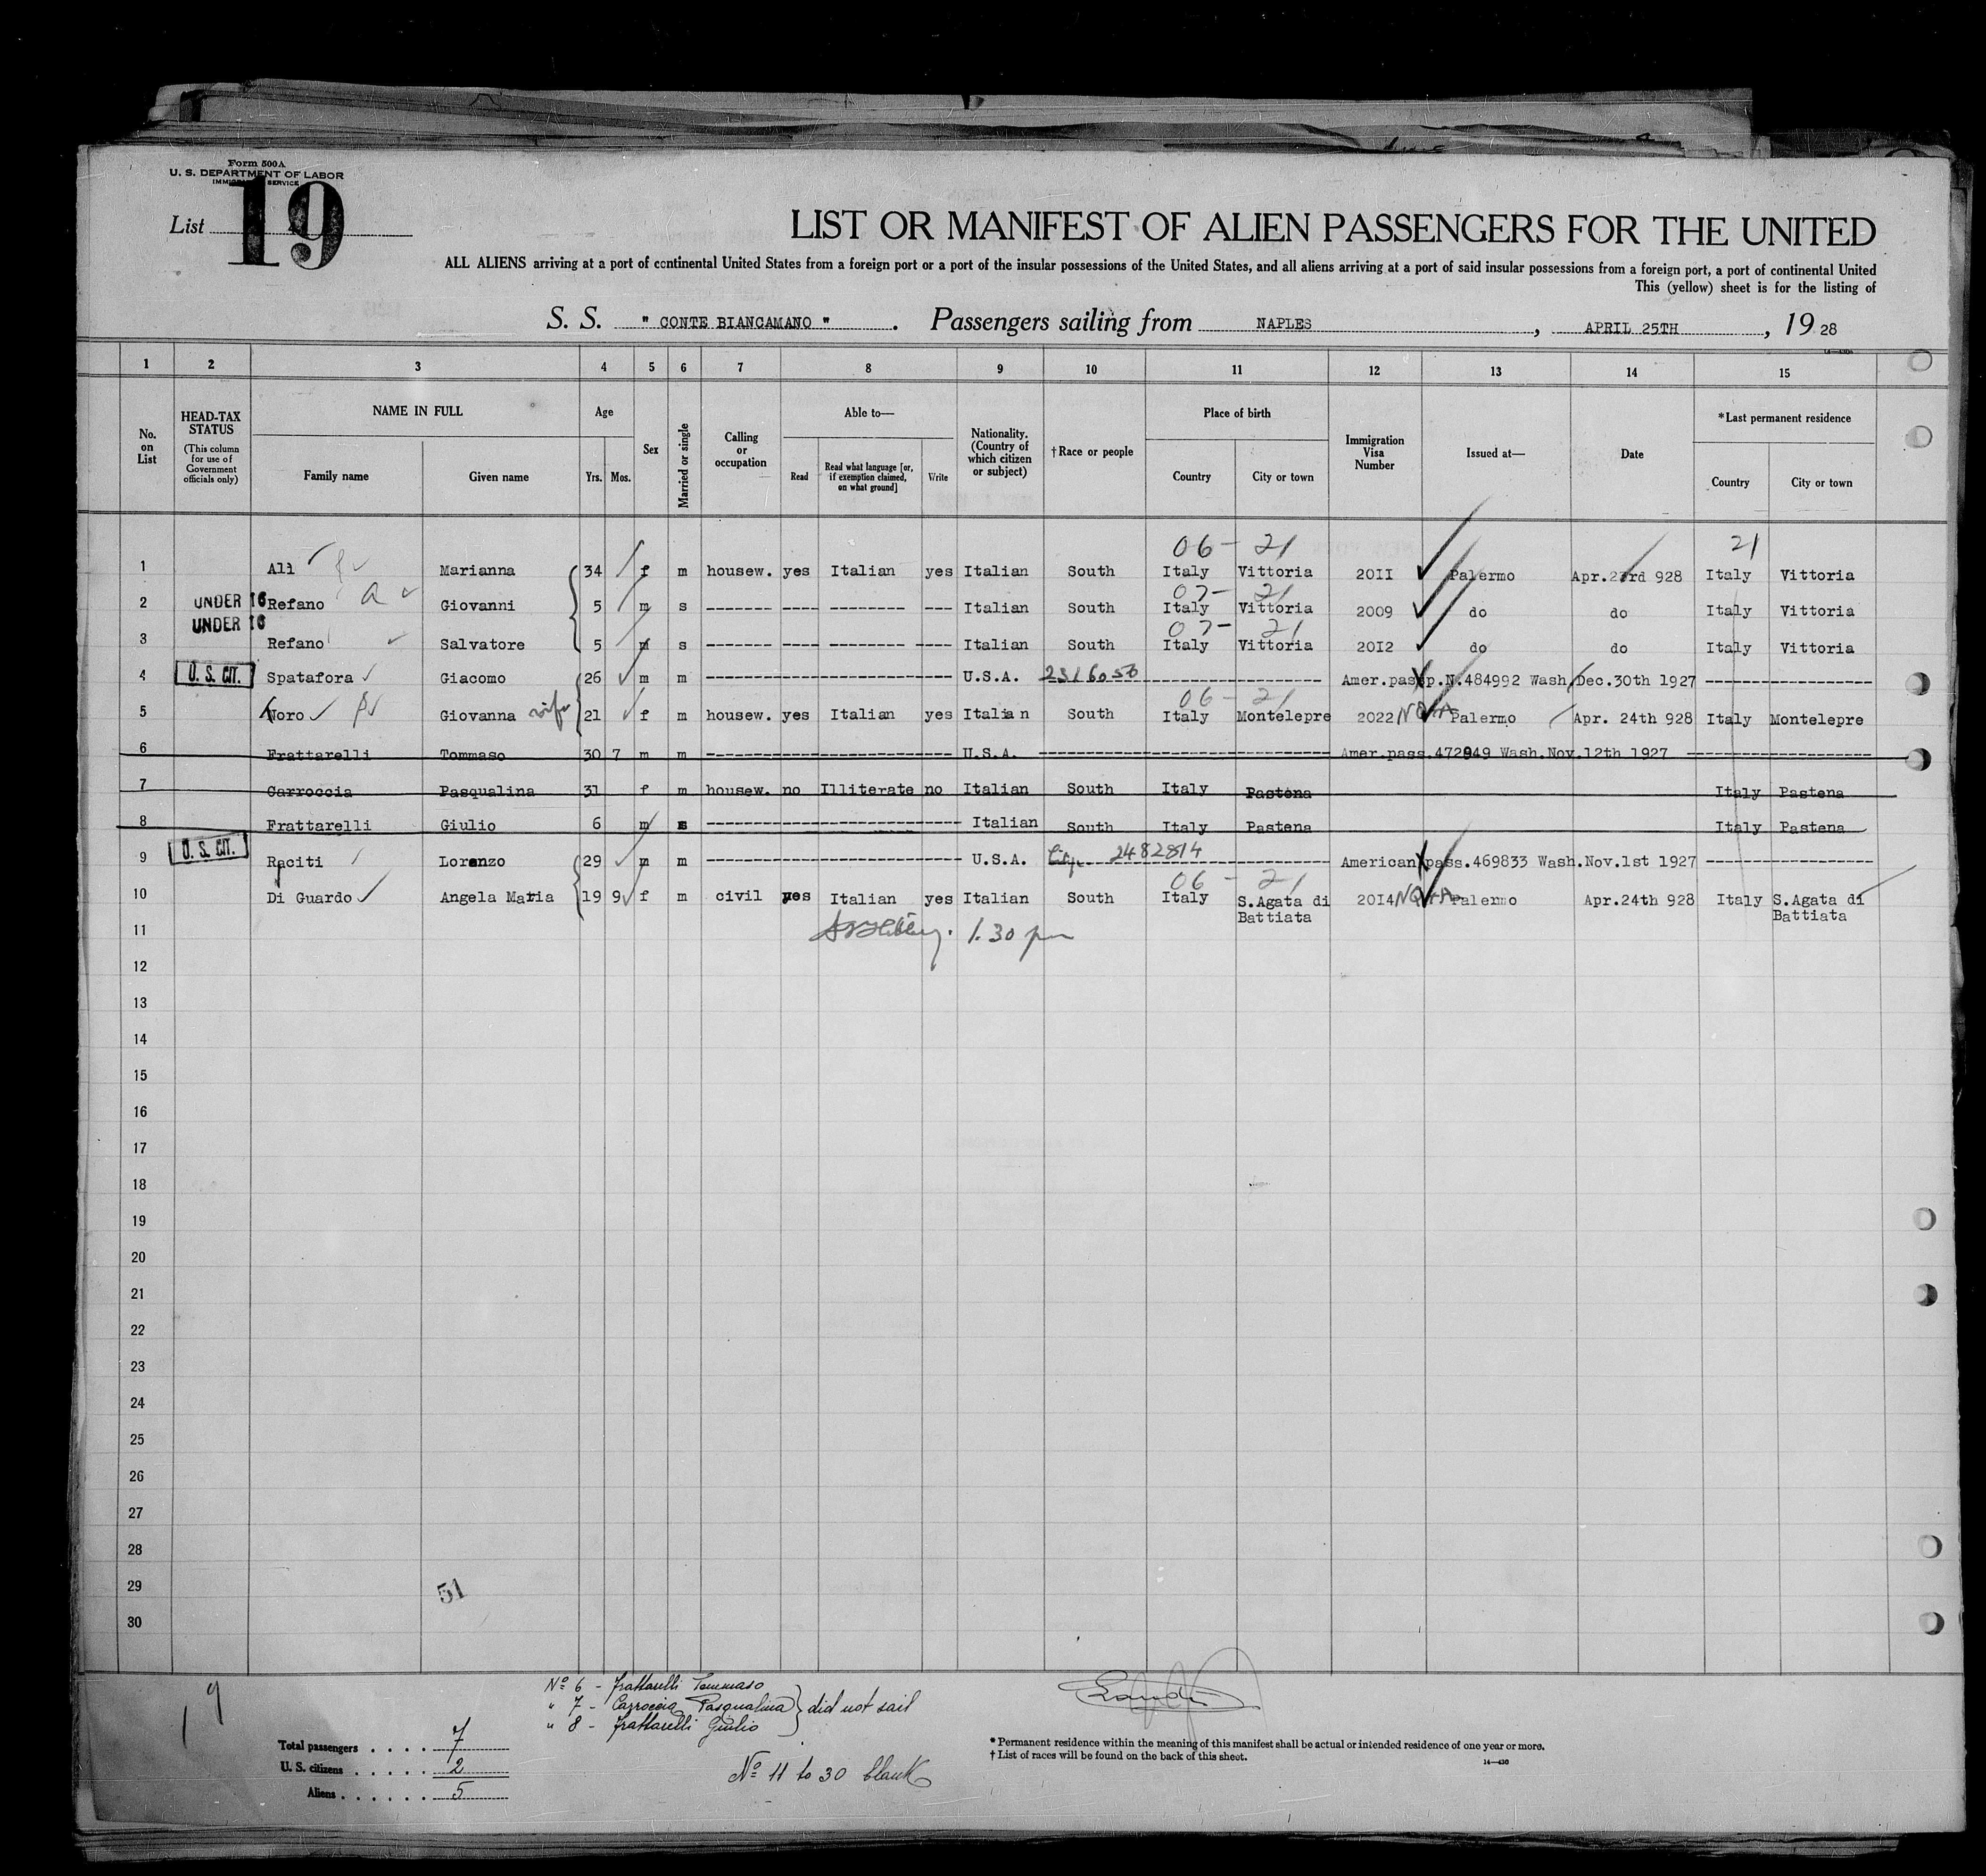 Form 500A
U. S. DEPARTMENT OF LABOR
SERVICE
List 19
LIST OR MANIFEST OF ALIEN PASSENGERS FOR THE UNITED
ALL ALIENS arriving at a port of continental United States from a foreign port or a port of the insular possessions of the United States, and all aliens arriving at a port of said insular possessions from a foreign port, a port of continental United
This (yellow) sheet is for the listing of
S. S. " CONTE BIANCAMANO " . Passengers sailing from NAPLES , APRIL 25TH , 19 28
1 2 3 4 5 6 7 8 9 10 11 12 13 14 15
No. on List
HEAD-TAX STATUS
(This column for use of Government officials only)
NAME IN FULL
Family name Given name
Age
Yrs. Mos.
Sex
Married or single
Calling or occupation
Able to—
Read Read what language [or, if exemption claimed, on what ground] Write
Nationality. (Country of which citizen or subject)
†Race or people
Place of birth
Country City or town
Immigration Visa Number
Issued at—
Date
*Last permanent residence
Country City or town
06 - 21 21
1 Ali Marianna 34 f m housew. yes Italian yes Italian South Italy Vittoria 2011 Palermo Apr.23rd 928 Italy Vittoria
07- 21
2 UNDER 16 Refano a Giovanni 5 m s ------- ---- -------- --- Italian South Italy Vittoria 2009 do do Italy Vittoria
07- 21
3 UNDER 16 Refano Salvatore 5 m s ------- ---- -------- --- Italian South Italy Vittoria 2012 do do Italy Vittoria
4 U. S. CIT. Spatafora Giacomo 26 m m ------- U.S.A. 2316050 ------- Amer.passp.N.484992 Wash Dec.30th 1927 -------
06 - 21
5 Noro Giovanna wife 21 f m housew. yes Italian yes Italian South Italy Montelepre 2022 NQIA Palermo Apr. 24th 928 Italy Montelepre
6 Frattarelli Tommaso 30 7 m m ------- U.S.A. ------- Amer.pass.472949 Wash.Nov.12th 1927 -------
7 Carroccia Pasqualina 31 f m housew. no Illiterate no Italian South Italy Pastena Italy Pastena
8 Frattarelli Giulio 6 m s ------- Italian South Italy Pastena Italy Pastena
9 U. S. CIT. Raciti Lorenzo 29 m m ------- U.S.A. 2482814 ------- American pass.469833 Wash.Nov.1st 1927 -------
06 - 21
10 Di Guardo Angela Maria 19 9 f m civil yes Italian yes Italian South Italy S.Agata di Battiata 2014 NQIA Palermo Apr.24th 928 Italy S.Agata di Battiata
11 1.30 pm
12
13
14
15
16
17
18
19
20
21
22
23
24
25
26
27
28
29 51
30
19
Nº 6 - Frattarelli Tommaso
" 7 - Carroccia Pasqualina } did not sail
" 8 - Frattarelli Giulio
Total passengers . . . . 7
U. S. citizens . . . . . 2
Aliens . . . . . . 5
Nº 11 to 30 blank
* Permanent residence within the meaning of this manifest shall be actual or intended residence of one year or more.
† List of races will be found on the back of this sheet.
14—430